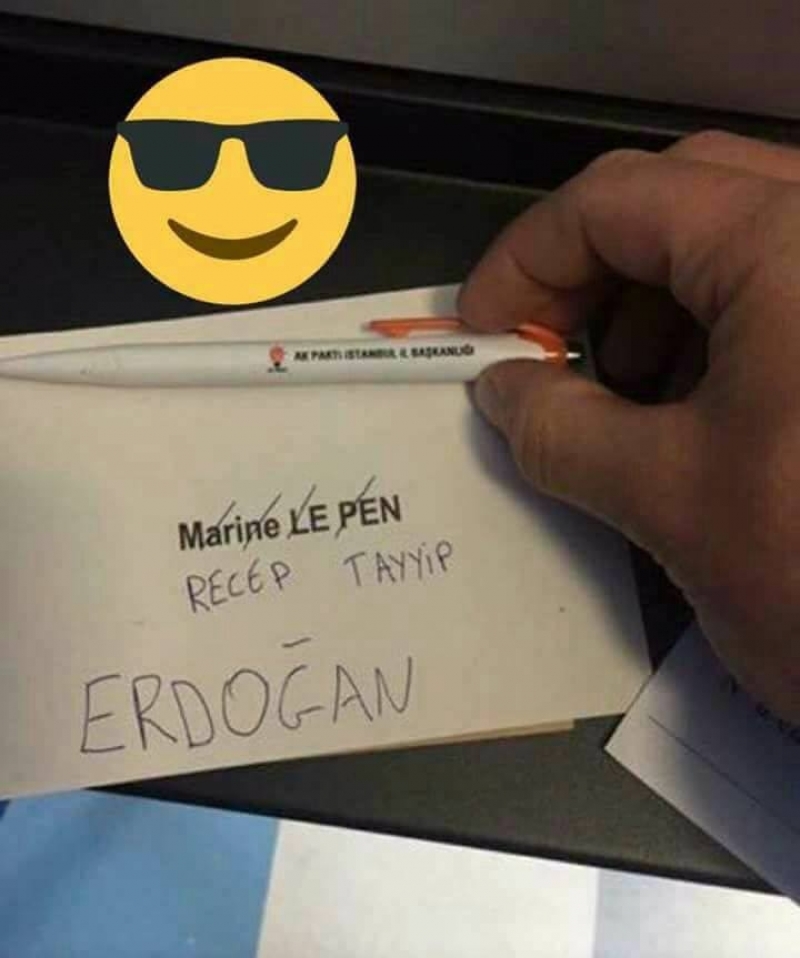 AK PARTİ İSTANBUL İL BAŞKANLIĞI
Marine LE PEN
RECEP TAYYİP
ERDOĞAN